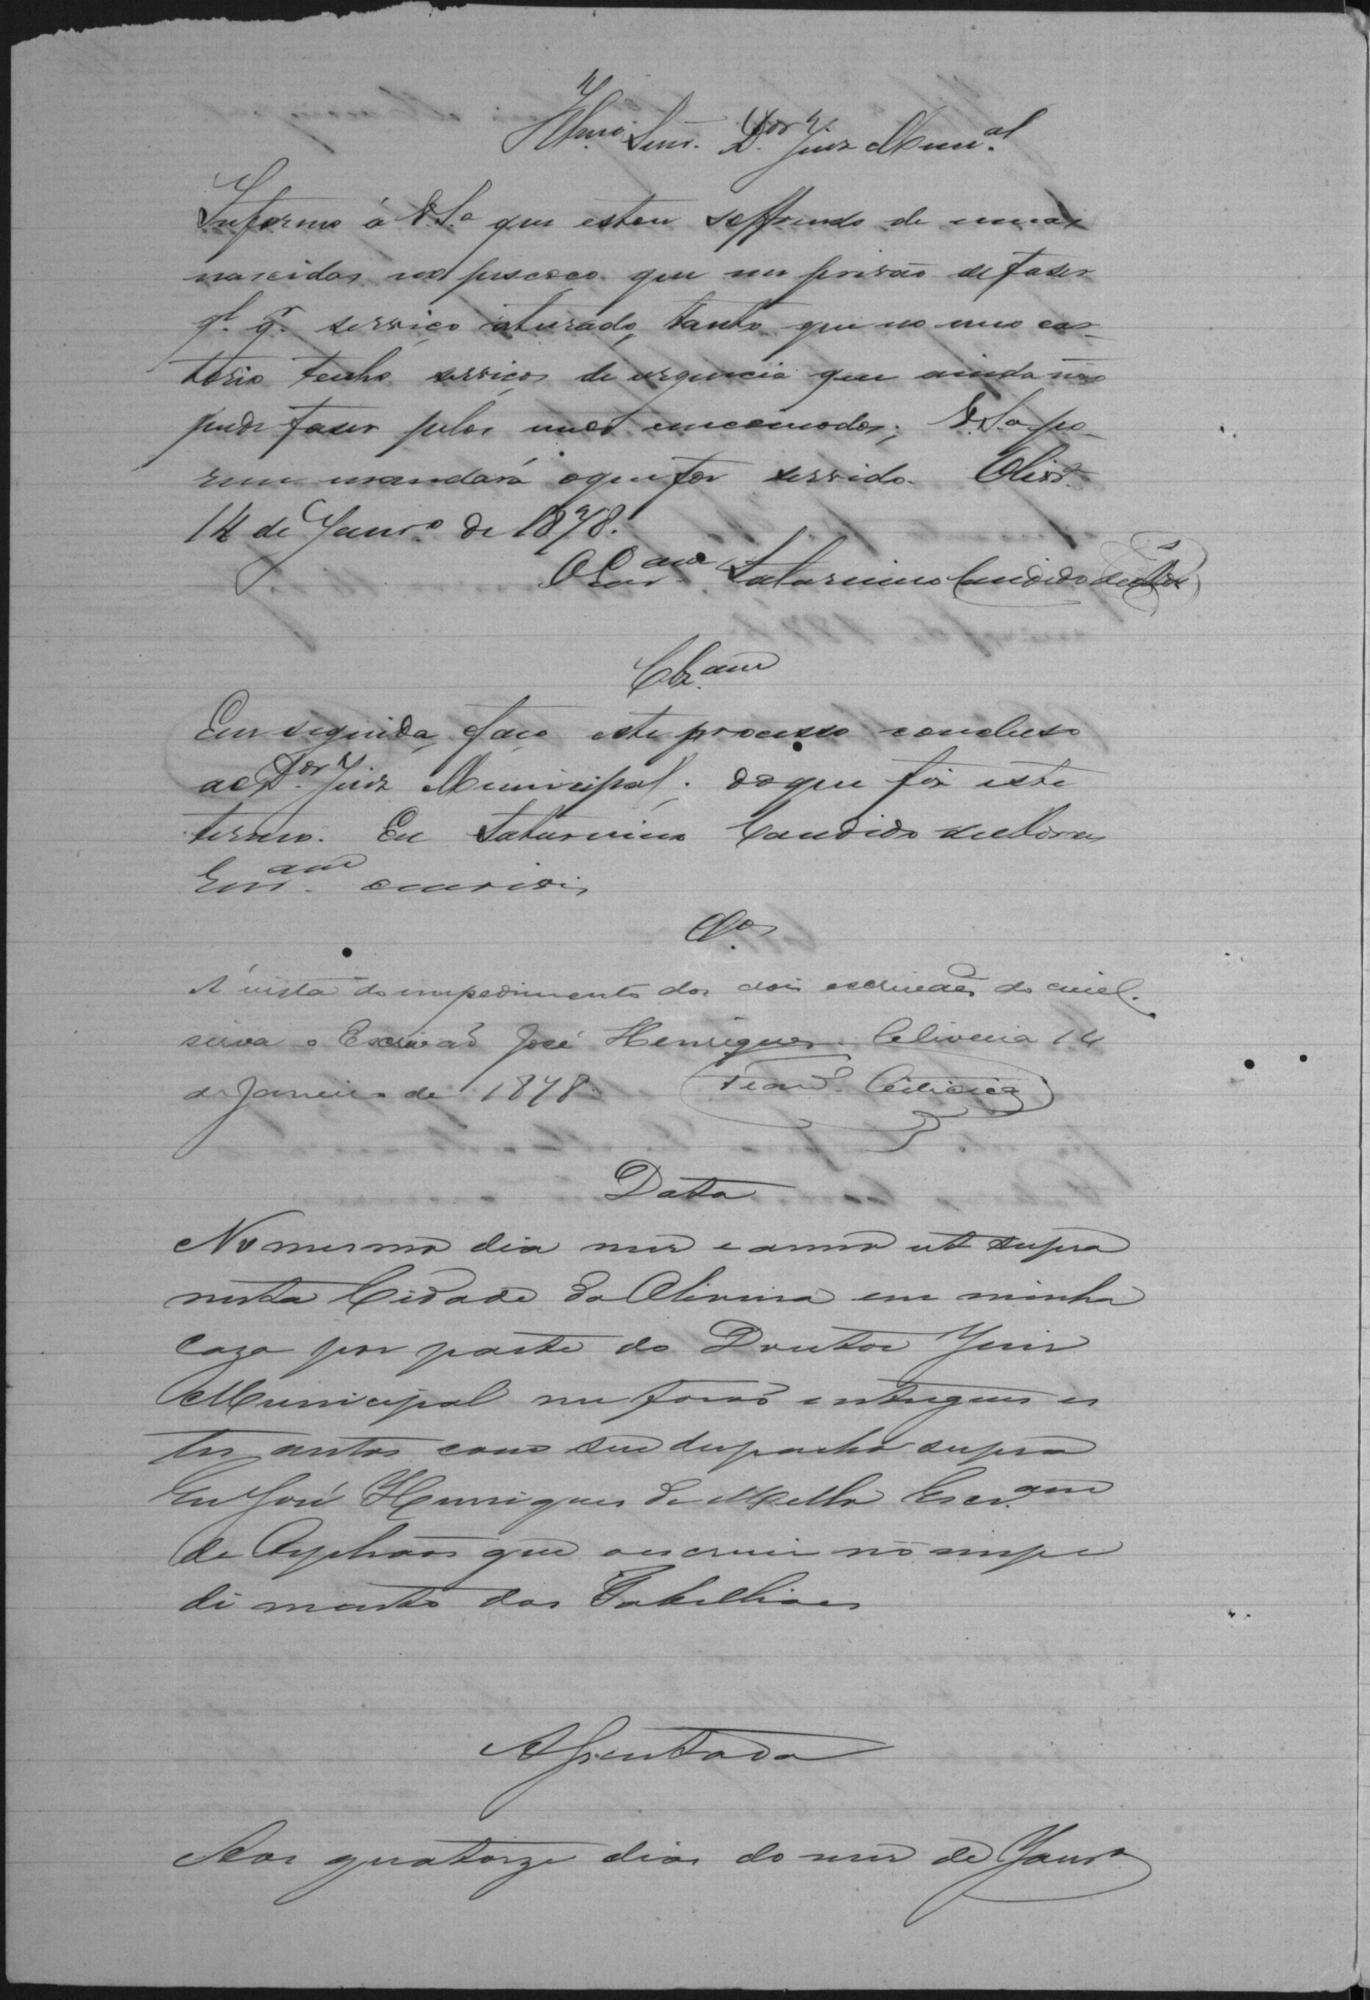 Illmo. Senr. Dor. Juiz Munal.
Informo á V.Sa que estou soffrendo de umas
nascidas no pescoço que me privão de faser
ql. qr. serviço aturado, tanto que no meo car-
torio tenho serviços de urgencia que ainda não
pude faser pelos meos incommodos; V.Sa po-
rem mandará o que for servido. Olivra.
14 de Janro. de 1878.
O Escam Saturnino Candido
Clzam
Em seguida, faço este processo concluso
ao Dor. Juiz Municipal. do que fiz este
termo. Eu Saturnino Candido
Escam. escrivi
Clos
Á vista do impedimento dos dois escrivães do civel.
sirva o Escrivão José Henriques. Oliveira 14
de Janeiro de 1878.
Data
No mesmo dia mez e anno ut supra
nesta Cidade da Oliveira em minha
caza por parte do Doutor Juiz
Municipal me forão entregues es
tes autos com seu despacho supra
Eu José Henriques de Mello Escram
de Orphãos que escrevi no impe
dimento dos Tabelliaes
Assentada
Aos quatorze dias do mez de Janro